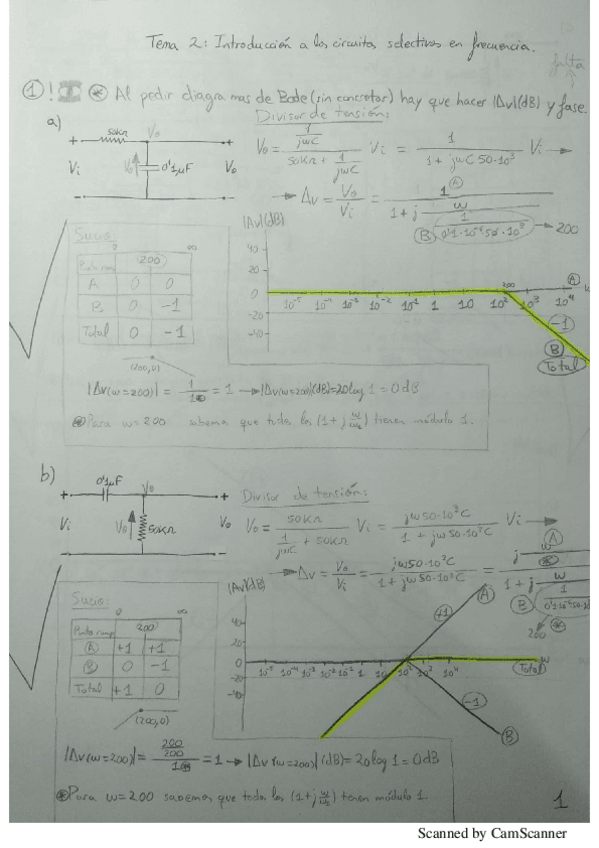 Tema 2: Introducción a los circuitos selectivos en frecuencia.
falta
① ! * Al pedir diagramas de Bode (sin concretar) hay que hacer |Av|(dB) y fase.
a)
Divisor de tensión:
50KΩ Vo
+ +
Vi Vo 0'1μF Vo
- -
Vo = (1/jwC) / (50KΩ + 1/jwC) Vi = 1 / (1 + jwC 50·10³) Vi →
→ Av = Vo/Vi = 1 Ⓐ / (1 + j w / (1 / 0'1·10⁻⁶ 50·10³)) Ⓑ → 200
Sucio:
0 200 ∞
A 0 0
B 0 -1
Total 0 -1
(200,0)
|Av|(dB)
40
20
0
-20
-40
10⁻⁵ 10⁻⁴ 10⁻³ 10⁻² 10⁻¹ 1 10 10² 200 10³ 10⁴ w
Ⓐ
-1
Ⓑ
Total
|Av(w=200)| = 1/1⊛ = 1 → |Av(w=200)|(dB) = 20log 1 = 0dB
⊛ Para w=200 sabemos que todos los (1+j w/w) tienen módulo 1.
b)
0'1μF Vo
+ +
Vi Vo 50KΩ Vo
- -
Divisor de tensión:
Vo = 50KΩ / (1/jwC + 50KΩ) Vi = jw50·10³C / (1 + jw50·10³C) Vi →
→ Av = Vo/Vi = jw50·10³C / (1 + jw50·10³C) =
Ⓐ
j w
1 + j w
Ⓑ
200 ⊛
Sucio:
0 200 ∞
Ⓐ +1 +1
Ⓑ 0 -1
Total +1 0
(200,0)
|Av|(dB)
40
20
0
-20
-40
10⁻⁵ 10⁻⁴ 10⁻³ 10⁻² 10⁻¹ 1 10 10² 10³ 10⁴ w
+1
Ⓐ
Total
-1
Ⓑ
|Av(w=200)| = (200/200)/1⊛ = 1 → |Av(w=200)|(dB) = 20log 1 = 0dB
⊛ Para w=200 sabemos que todos los (1+j w/w) tienen módulo 1.
1
Scanned by CamScanner